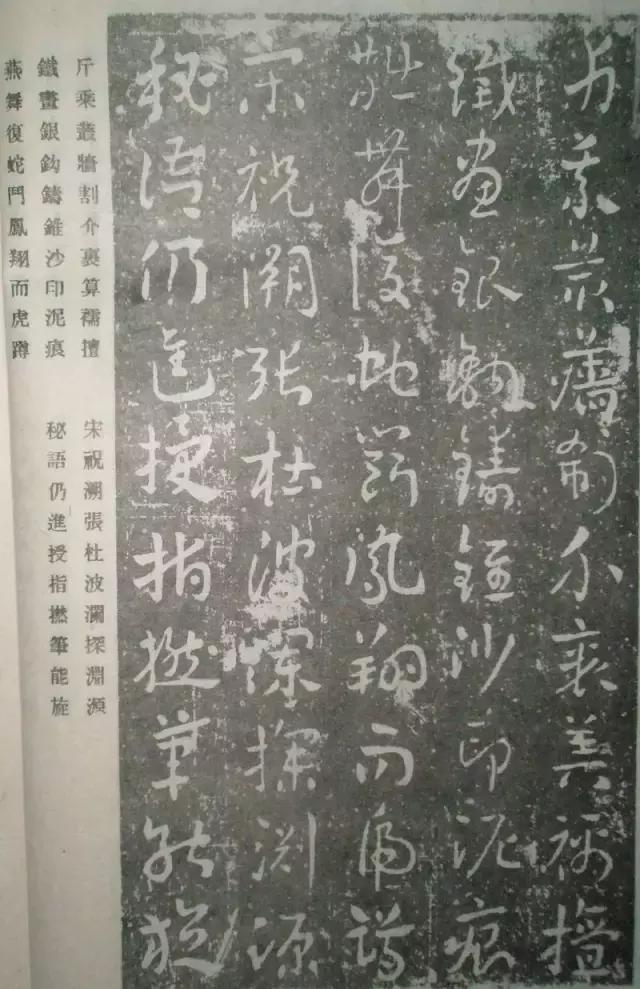 斤乘叢牆割介裹算襦擅
鐵畫銀鈎鑄錐沙印泥痕
燕舞復蛇鬥鳳翔而虎蹲
宋祝溯張杜波瀾探淵源
秘語仍進授指撚筆能旋
斤乘叢牆割介裹算襦擅
鐵畫銀鈎鑄錐沙印泥痕
燕舞復蛇鬥鳳翔而虎蹲
宋祝溯張杜波瀾探淵源
秘語仍進授指撚筆能旋